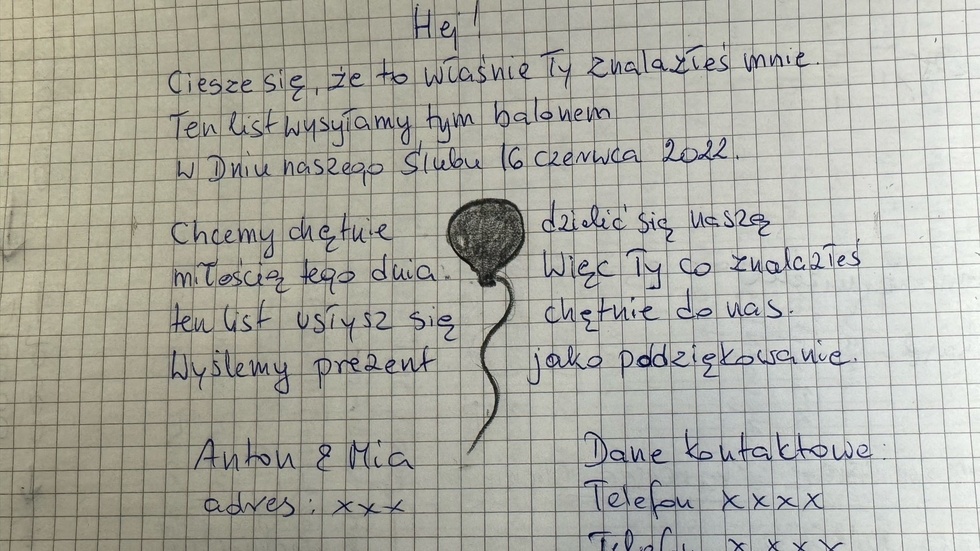 Hej!
Ciesze się, że to właśnie Ty znalazłeś mnie.
Ten list wysyłamy tym balonem
w Dniu naszego Ślubu 16 czerwca 2022.
Chcemy chętnie dzielić się naszą
miłością tego dnia. Więc Ty co znalazłeś
ten list usłysz się chętnie do nas.
Wyślemy prezent jako poddziękowanie.
Anton & Mia Dane kontaktowe:
adres: xxx Telefon xxxx
Telefon xxxx